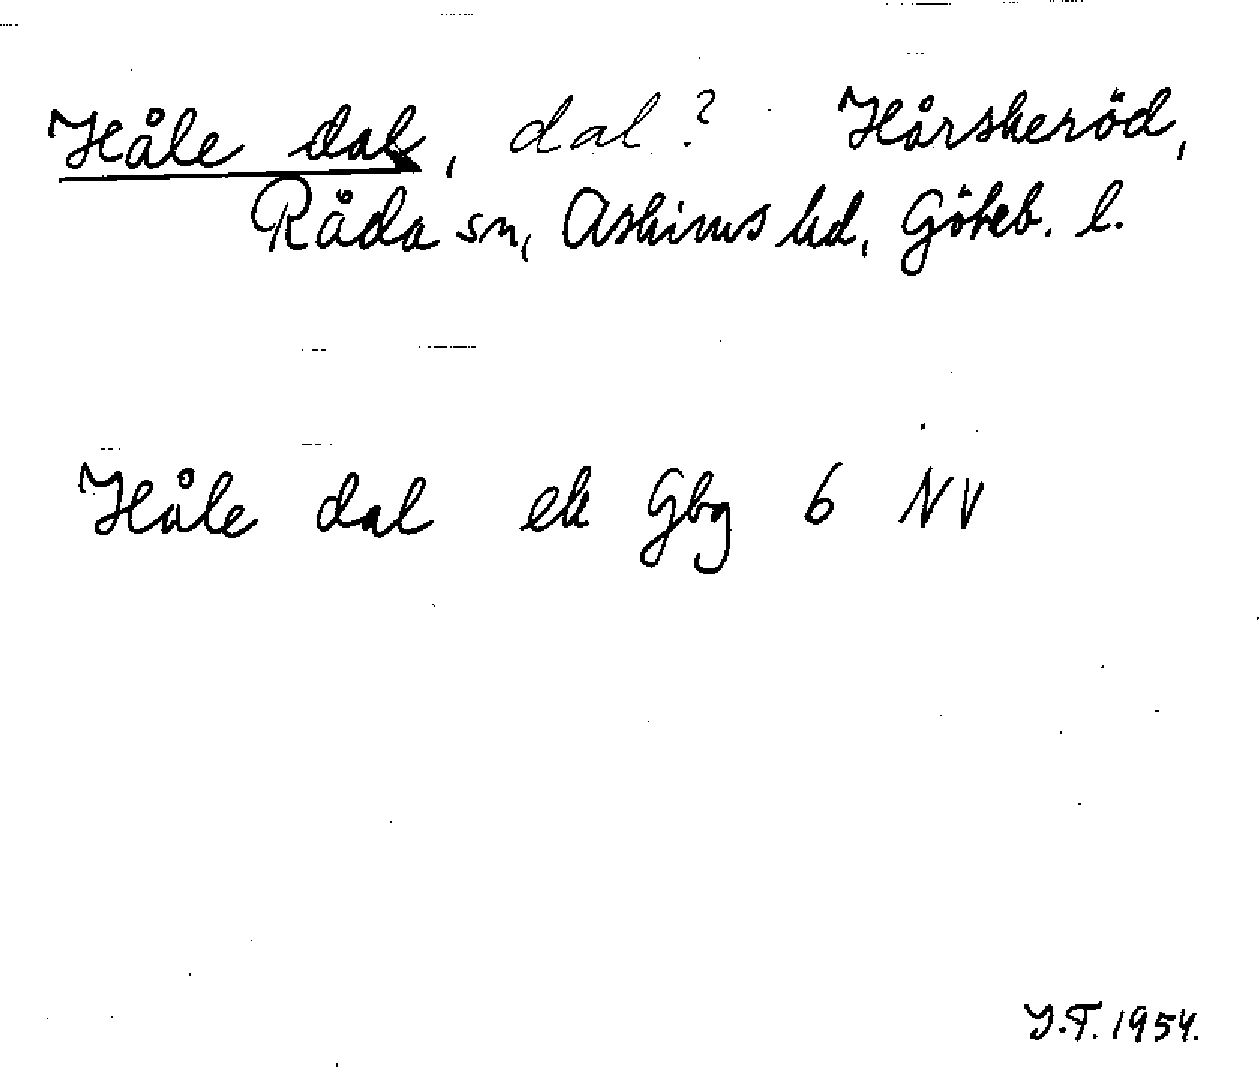 Håle dal, dal? Hårskeröd,
Råda sn, Askims hd, Göteb. l.
Håle dal ek Gbg 6 NV
Y.T. 1954.